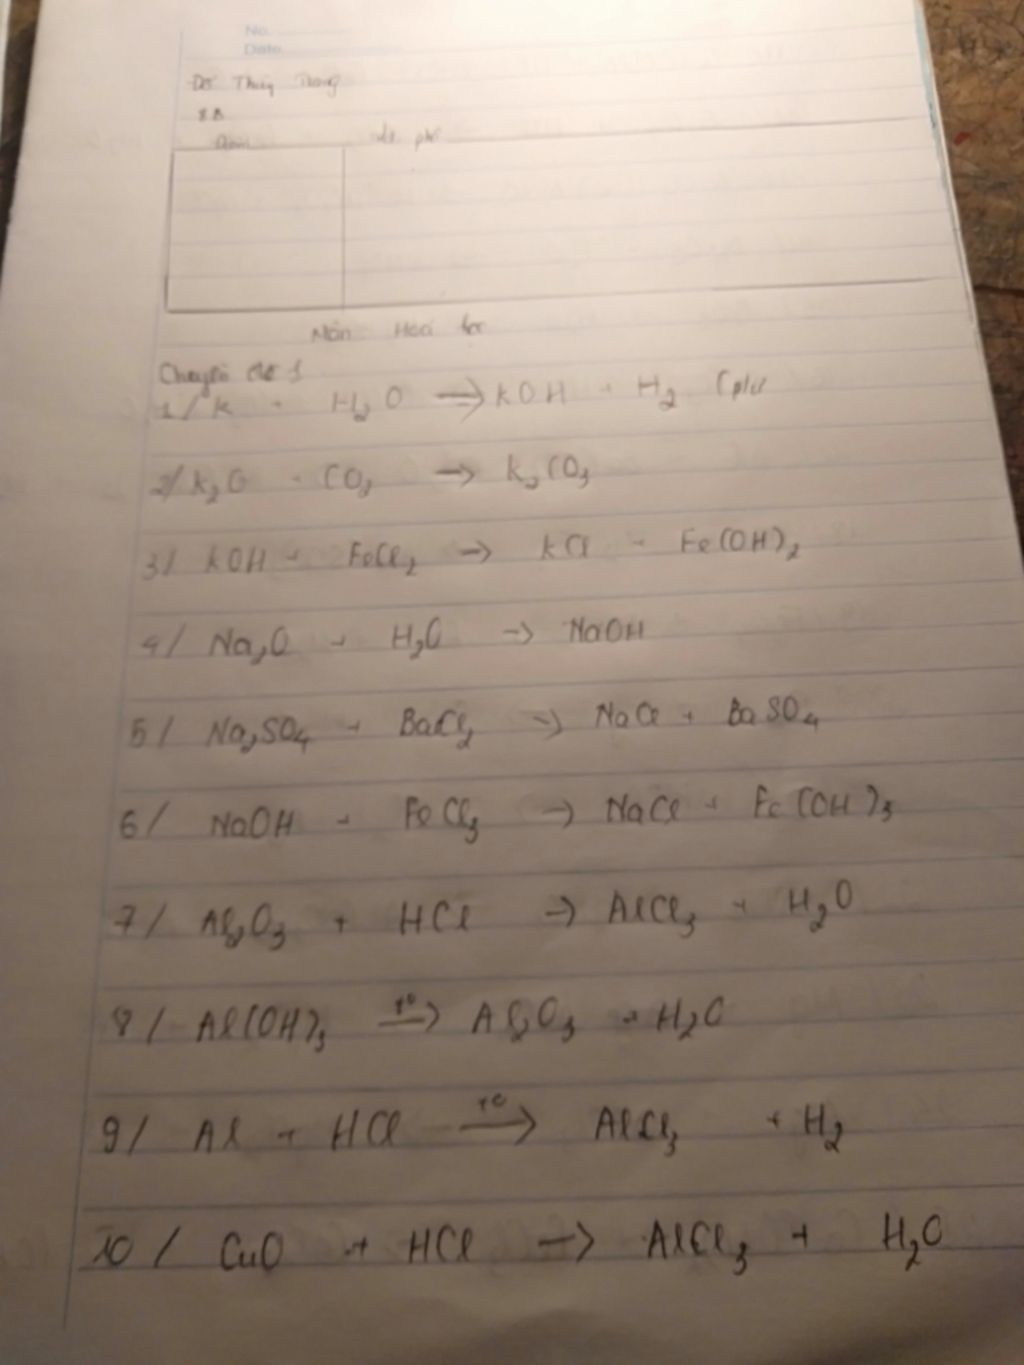 No.
Date
Đỗ Thùy Trang
8B
Môn Hoá học
Chuyên đề 1
1/ K + H₂O → KOH + H₂
2/ K₂O + CO₂ → K₂CO₃
3/ KOH + FeCl₂ → KCl + Fe(OH)₂
4/ Na₂O + H₂O → NaOH
5/ Na₂SO₄ + BaCl₂ → NaCl + BaSO₄
6/ NaOH + FeCl₃ → NaCl + Fe(OH)₃
7/ Al₂O₃ + HCl → AlCl₃ + H₂O
8/ Al(OH)₃ t° → Al₂O₃ + H₂O
9/ Al + HCl t° → AlCl₃ + H₂
10/ CuO + HCl → AlCl₃ + H₂O